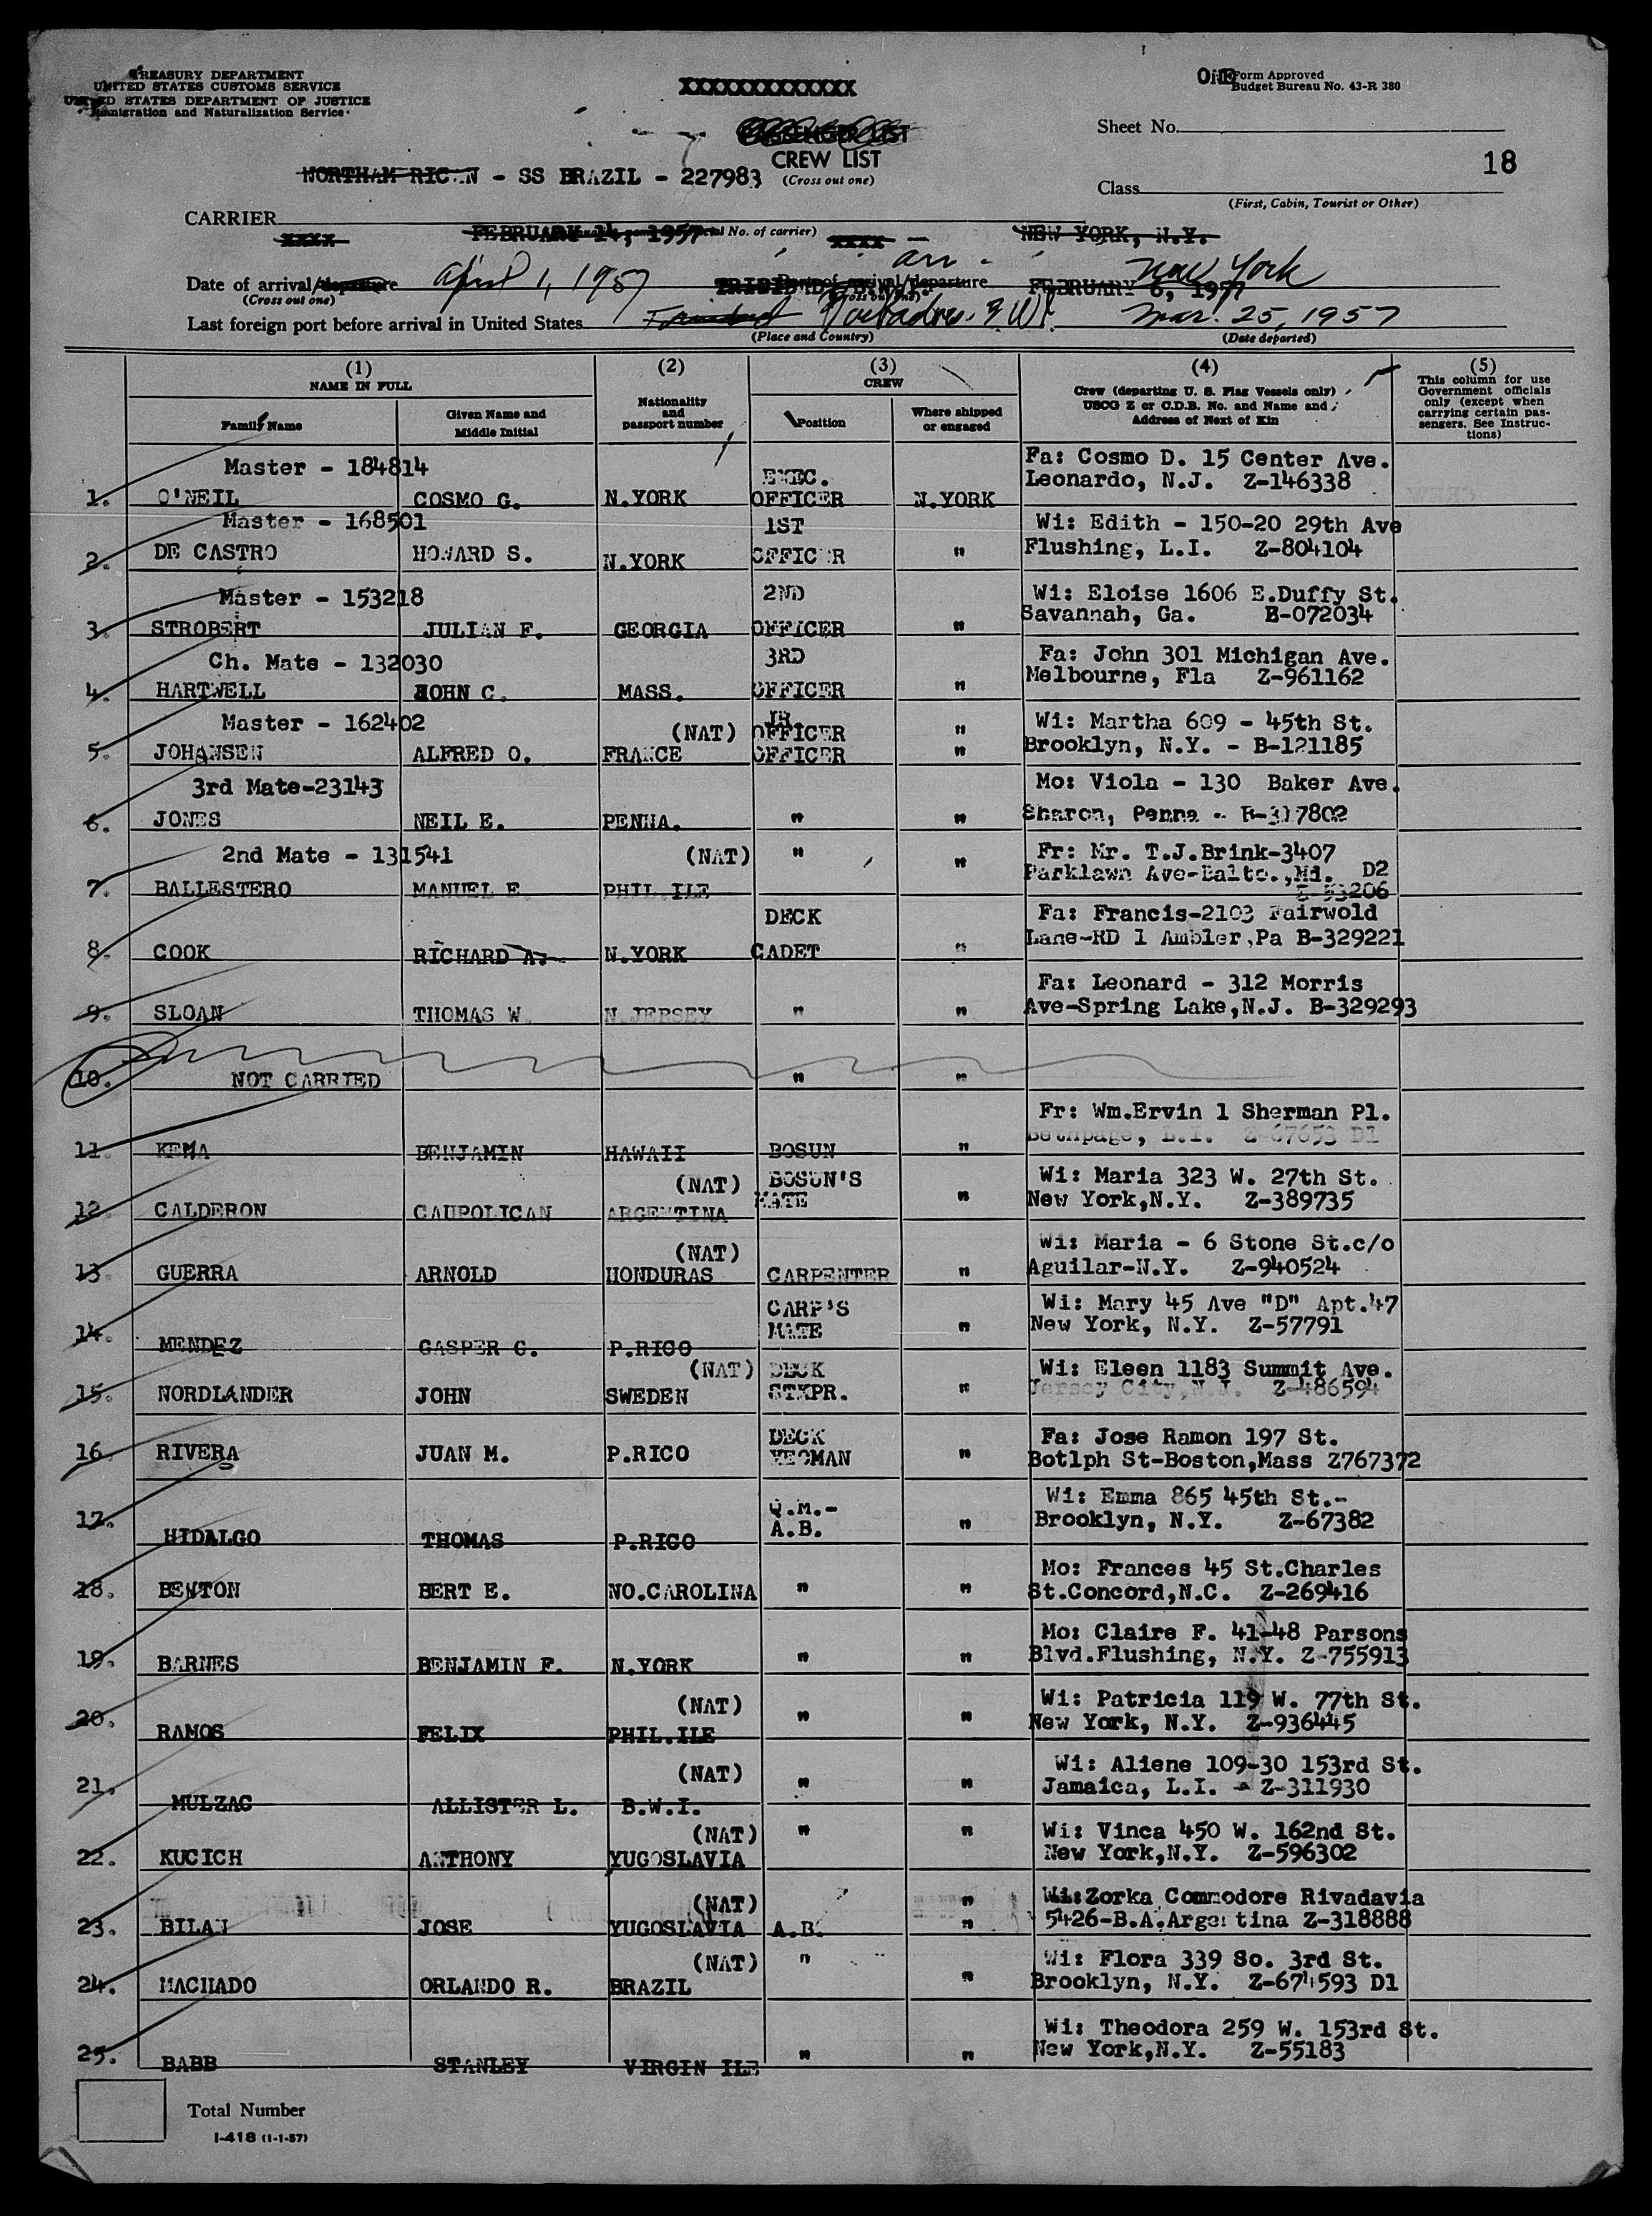 TREASURY DEPARTMENT
UNITED STATES CUSTOMS SERVICE
UNITED STATES DEPARTMENT OF JUSTICE
Immigration and Naturalization Service
XXXXXXXXXXXXX
PASSENGER LIST
CREW LIST
(Cross out one)
ONE
Form Approved
Budget Bureau No. 43-R 380
Sheet No.
18
Class
(First, Cabin, Tourist or Other)
NORTHAMERICAN - SS BRAZIL - 227983
CARRIER
XXXX FEBRUARY 14, 1957 No. of carrier) XXXX NEW YORK, N.Y.
Date of arrival/departure April 1, 1957 Port of arrival/departure arr. New York
(Cross out one) TRINIDAD (Cross out one) FEBRUARY 6, 1957
Last foreign port before arrival in United States Trinidad Mar. 25, 1957
(Place and Country) (Date departed)
(1) (2) (3) (4) (5)
NAME IN FULL
Family Name
Given Name and Middle Initial
Nationality and passport number
CREW
Position
Where shipped or engaged
Crew (departing U. S. Flag Vessels only)
USCG Z or C.D.B. No. and Name and
Address of Next of Kin
This column for use Government officials only (except when carrying certain passengers. See Instructions)
Master - 184814 EXEC. Fa: Cosmo D. 15 Center Ave.
1. O'NEIL COSMO G. N.YORK OFFICER N.YORK Leonardo, N.J. Z-146338
Master - 168501 1ST Wi: Edith - 150-20 29th Ave
2. DE CASTRO HOWARD S. N.YORK OFFICER " Flushing, L.I. Z-804104
Master - 153218 2ND Wi: Eloise 1606 E.Duffy St.
3. STROBERT JULIAN F. GEORGIA OFFICER " Savannah, Ga. B-072034
Ch. Mate - 132030 3RD Fa: John 301 Michigan Ave.
4. HARTWELL JOHN C. MASS. OFFICER " Melbourne, Fla Z-961162
Master - 162402 (NAT) JR. OFFICER " Wi: Martha 609 - 45th St.
5. JOHANSEN ALFRED O. FRANCE OFFICER " Brooklyn, N.Y. - B-121185
3rd Mate-23143 Mo: Viola - 130 Baker Ave.
6. JONES NEIL E. PENNA. " " Sharon, Penna - B-317802
2nd Mate - 131541 (NAT) " " Fr: Mr. T.J.Brink-3407
7. BALLESTERO MANUEL E. PHIL.ILE Parklawn Ave-Balto.,Md. D2
Z-53206
DECK Fa: Francis-2103 Fairwold
8. COOK RICHARD A. N.YORK CADET " Lane-RD 1 Ambler,Pa B-329221
Fa: Leonard - 312 Morris
9. SLOAN THOMAS W. N.JERSEY " " Ave-Spring Lake,N.J. B-329293
10. NOT CARRIED " "
Fr: Wm.Ervin 1 Sherman Pl.
11. KEMA BENJAMIN HAWAII BOSUN " Bethpage, L.I. Z-67653 D1
(NAT) BOSUN'S Wi: Maria 323 W. 27th St.
12. CALDERON CAUPOLICAN ARGENTINA MATE " New York,N.Y. Z-389735
(NAT) Wi: Maria - 6 Stone St.c/o
13. GUERRA ARNOLD HONDURAS CARPENTER " Aguilar-N.Y. Z-940524
CARP'S Wi: Mary 45 Ave "D" Apt.47
14. MENDEZ GASPER C. P.RICO MATE " New York, N.Y. Z-57791
(NAT) DECK Wi: Eleen 1183 Summit Ave.
15. NORDLANDER JOHN SWEDEN STKPR. " Jersey City,N.J. Z-486594
DECK Fa: Jose Ramon 197 St.
16. RIVERA JUAN M. P.RICO YEOMAN " Botlph St-Boston,Mass Z767372
Q.M.- Wi: Emma 865 45th St.-
17. HIDALGO THOMAS P.RICO A.B. " Brooklyn, N.Y. Z-67382
Mo: Frances 45 St.Charles
18. BENTON BERT E. NO.CAROLINA " " St.Concord,N.C. Z-269416
Mo: Claire F. 41-48 Parsons
19. BARNES BENJAMIN F. N.YORK " " Blvd.Flushing, N.Y. Z-755913
(NAT) Wi: Patricia 119 W. 77th St.
20. RAMOS FELIX PHIL.ILE " " New York, N.Y. Z-936445
(NAT) Wi: Aliene 109-30 153rd St.
21. MULZAC ALLISTER L. B.W.I. " " Jamaica, L.I. - Z-311930
(NAT) " " Wi: Vinca 450 W. 162nd St.
22. KUCICH ANTHONY YUGOSLAVIA New York,N.Y. Z-596302
(NAT) " Wi:Zorka Commodore Rivadavia
23. BILAN JOSE YUGOSLAVIA A.B. " 5426-B.A.Argentina Z-318888
(NAT) " Wi: Flora 339 So. 3rd St.
24. MACHADO ORLANDO R. BRAZIL " Brooklyn, N.Y. Z-674593 D1
Wi: Theodora 259 W. 153rd St.
25. BABB STANLEY VIRGIN ILE " " New York,N.Y. Z-55183
Total Number
I-418 (1-1-57)